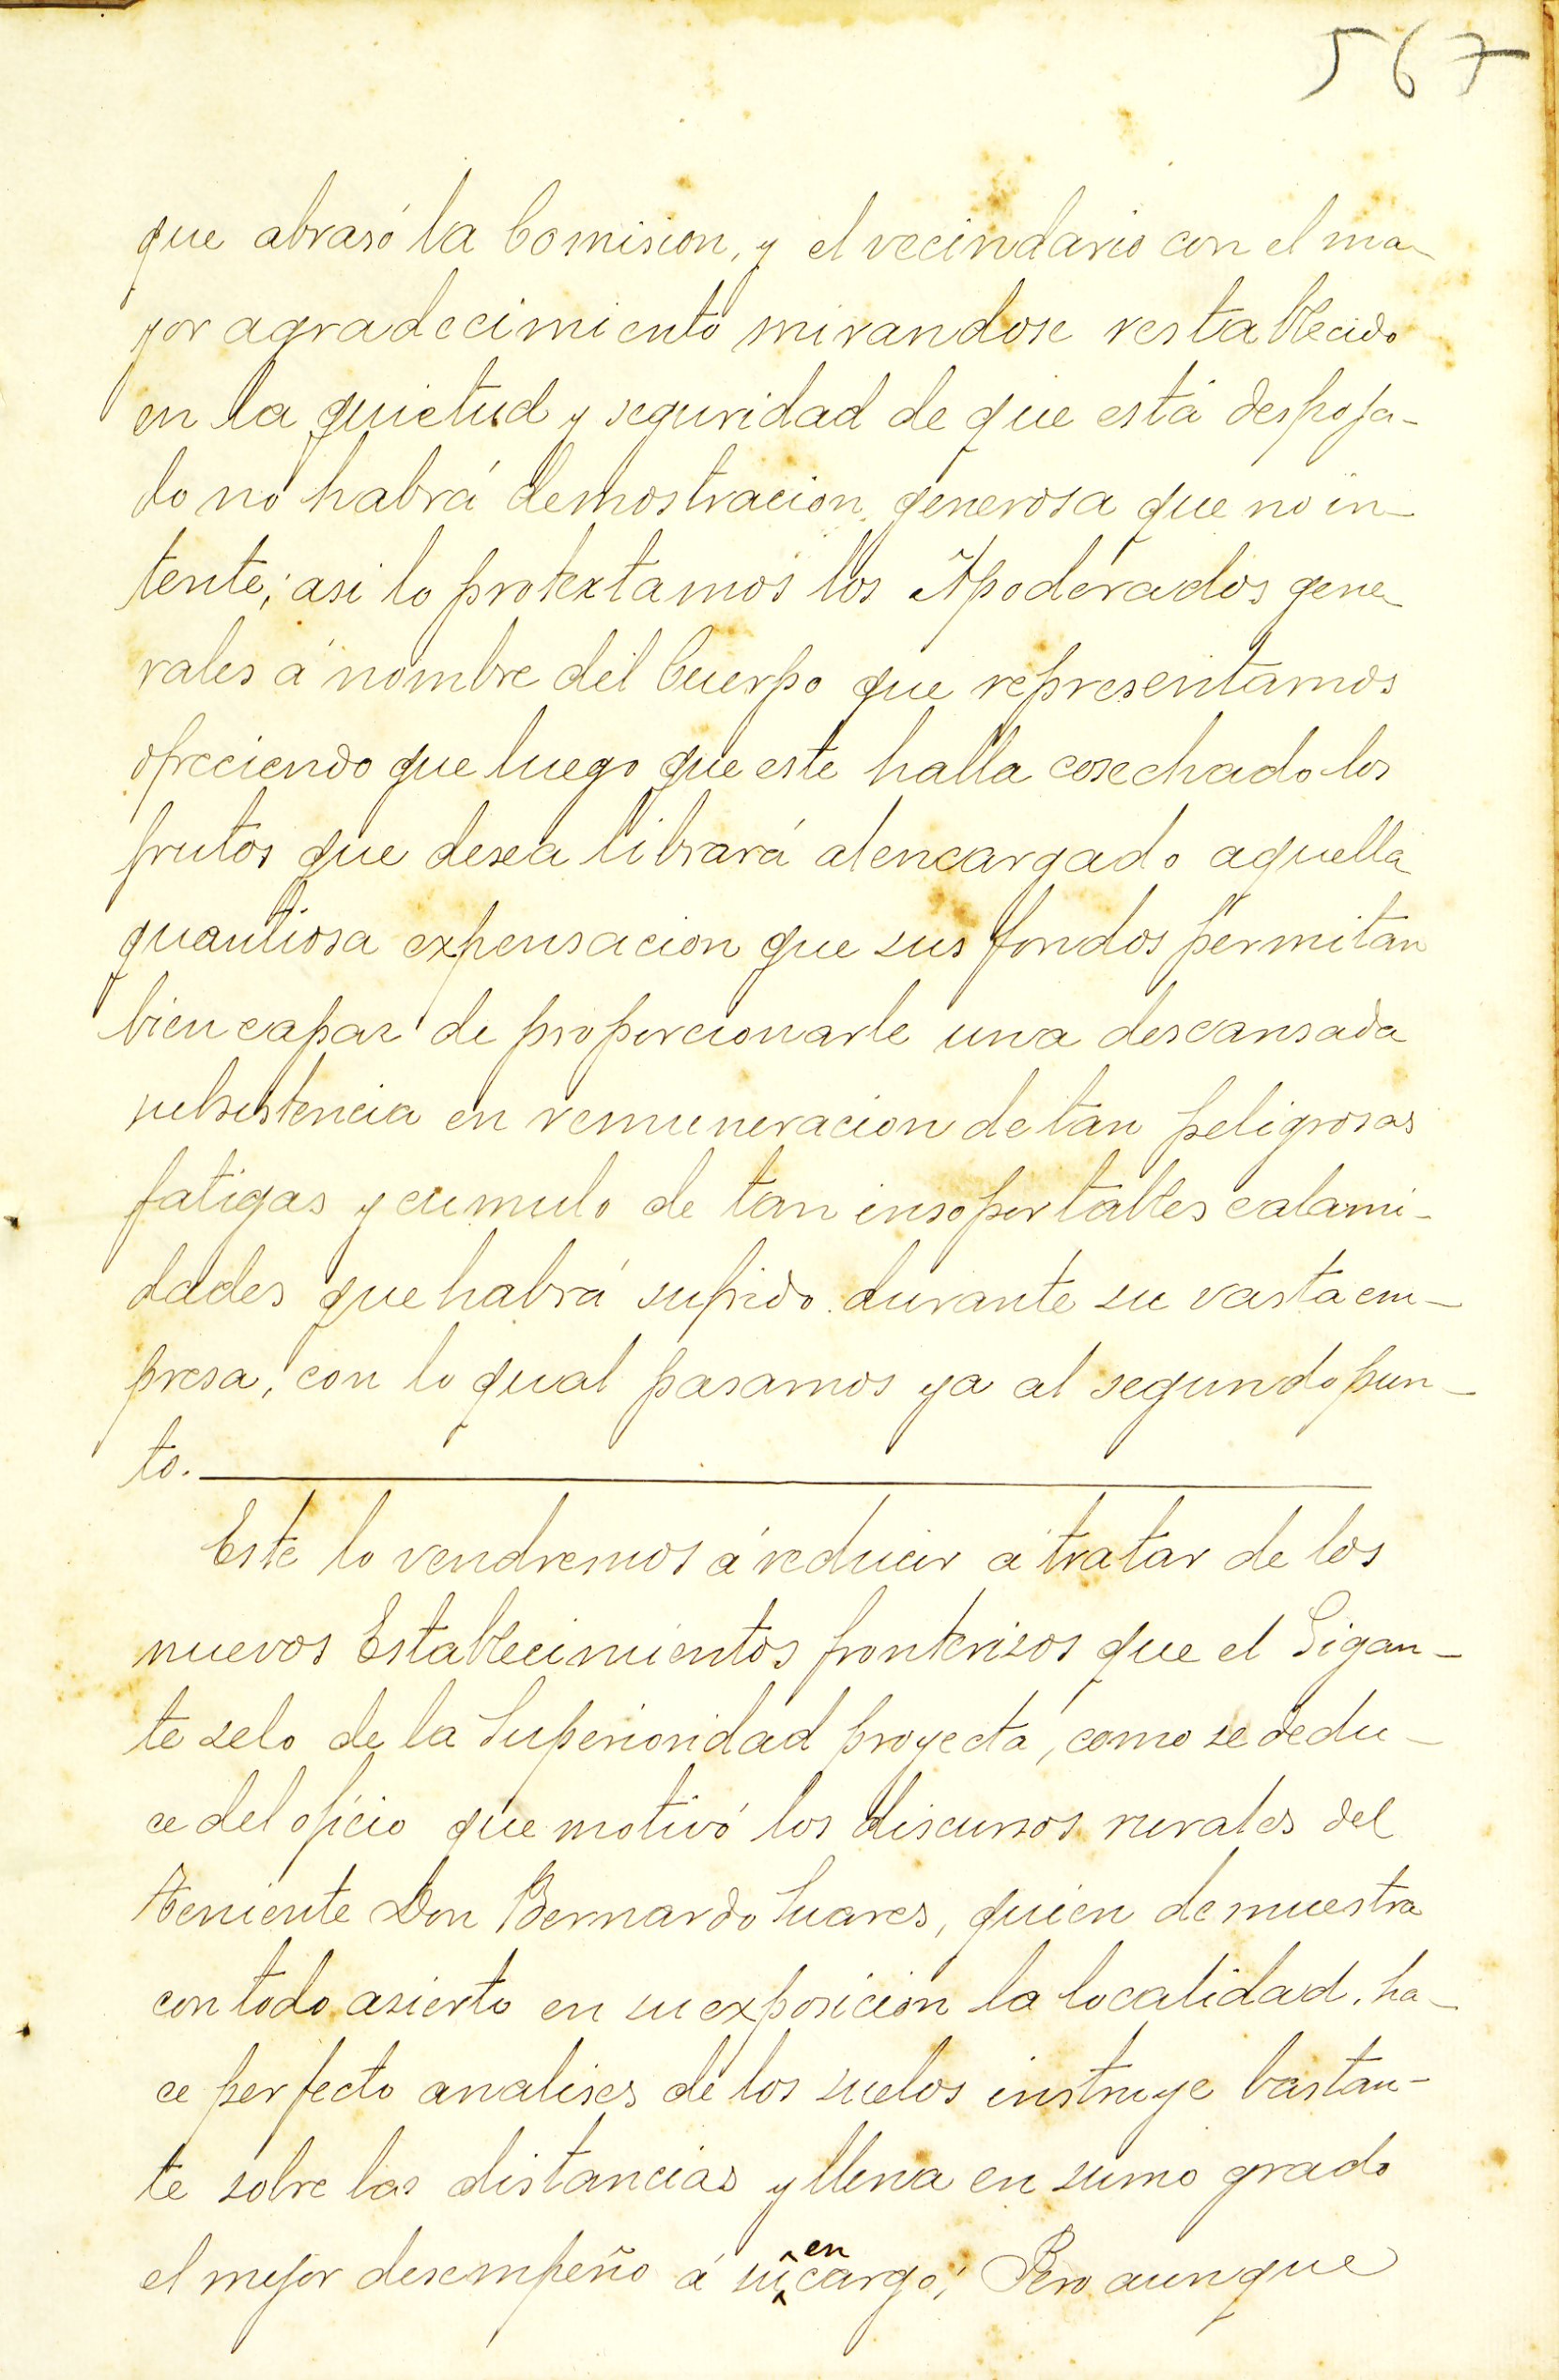 567
que abrasó la Comision, y el vecindario con el ma-
yor agradecimiento mirandose restablecido
en la quietud y seguridad de que está despoja-
do no habrá demostracion generosa que no in-
tente; asi lo protextamos los Apoderados gene-
rales á nombre del Cuerpo que representamos
ofreciendo que luego que este halla cosechado los
frutos que desea librará al encargado aquella
quantiosa expensacion que sus fondos permitan
bien capaz de proporcionarle una descansada
subsistencia en remuneracion de tan peligrosas
fatigas y cumulo de tan insoportables calami-
dades que habrá sufrido durante su vasta em-
presa, con lo qual pasamos ya al segundo pun-
to.
Este lo vendremos á reducir á tratar de los
nuevos Establecimientos fronterisos que el Gigan-
te zelo de la Superioridad proyecta, como se dedu-
ce del oficio que motivó los discursos rurales del
Teniente Don Bernardo Suares, quien demuestra
con todo asierto en su exposicion la localidad, ha-
ce perfecto analises de los suelos instruye bastan-
te sobre las distancias y llena en sumo grado
el mejor desempeño á su encargo; Pero aunque